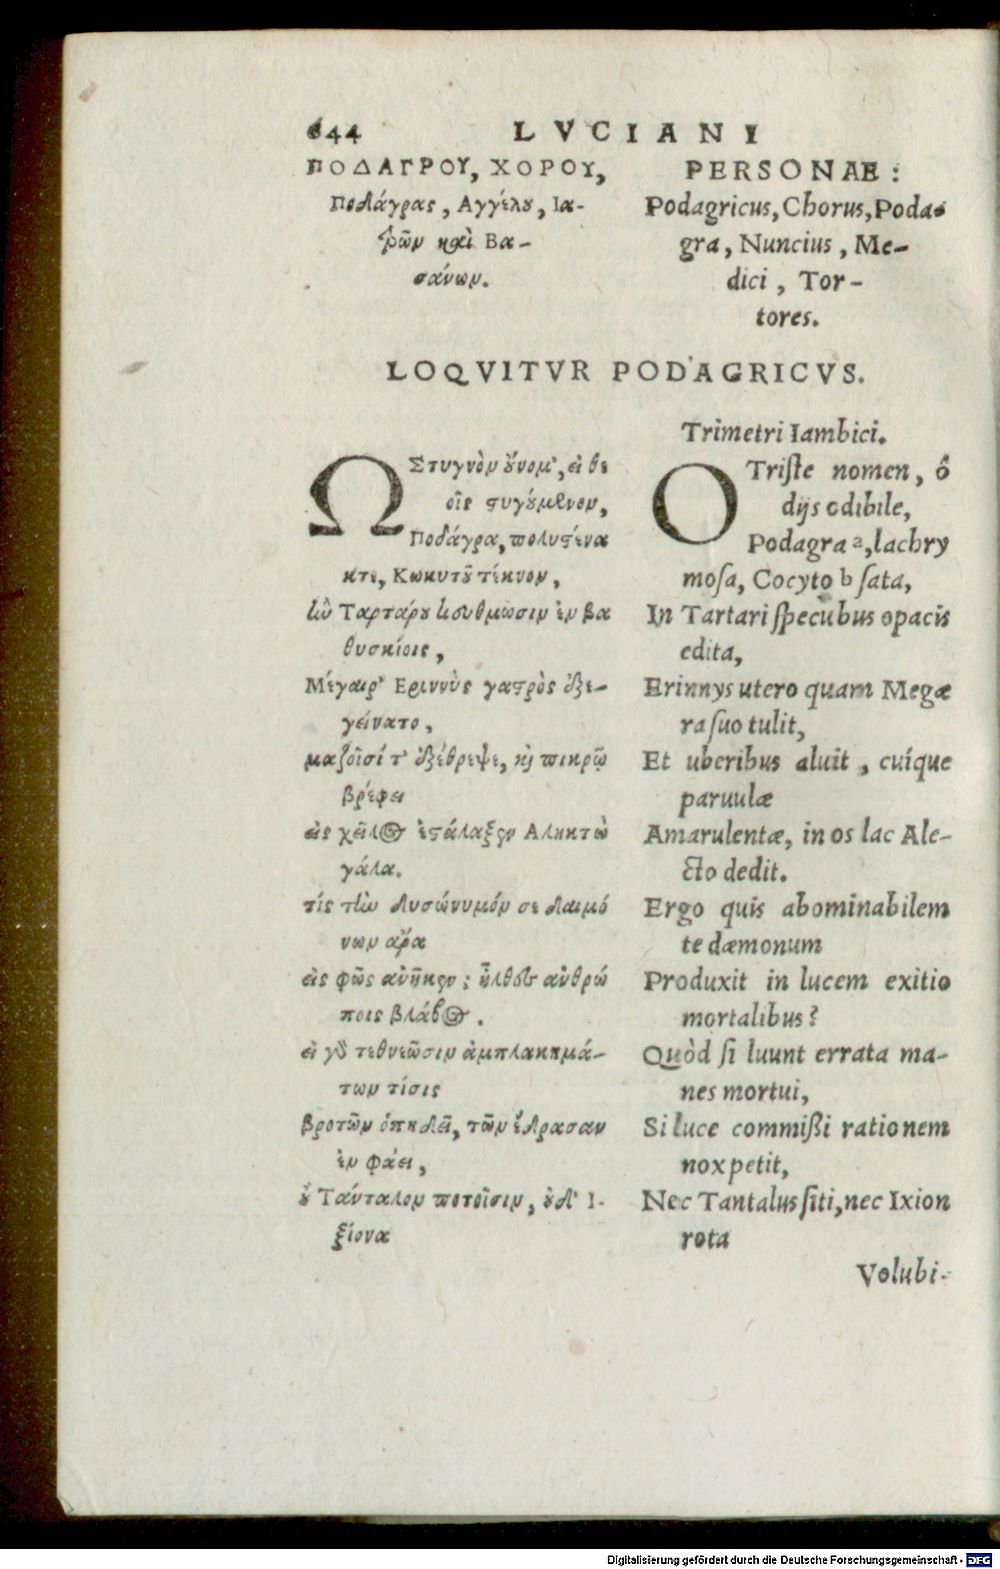 644 LVCIANI
ΠΟΔΑΓΡΟΥ, ΧΟΡΟΥ,
Ποδάγρας, Αγγέλου, Ια-
τρῶν καὶ Βα-
σάνων.
PERSONAE:
Podagricus, Chorus, Poda-
gra, Nuncius, Me-
dici, Tor-
tores.
LOQVITVR PODAGRICVS.
Ω Στυγνὸν οὔνομ', εἰ θε
οῖς στυγούμενον,
Ποδάγρα, πολυστένα
κτε, Κωκυτοῦ τέκνον,
ἣν Ταρτάρου κευθμῶσιν ἐν βα
θυσκίοις,
Μέγαιρ' Εριννὺς γαστρὸς ἐξε-
γείνατο,
μαζοῖσί τ' ἐξέθρεψε, καὶ πικρῷ
βρέφει
εἰς χεῖλος ἐστάλαξεν Αληκτὼ
γάλα.
τίς τὴν δυσώνυμόν σε δαιμό
νων ἄρα
εἰς φῶς ἀνῆκεν; ἦλθες ἀνθρώ
ποις βλάβος.
εἰ γὰρ τεθνεῶσιν ἀμπλακημά-
των τίσις
βροτῶν ὀπηδεῖ, τῶν ἔδρασαν
ἐν φάει,
οὐ Τάνταλον ποτοῖσιν, οὐδ' Ι-
ξίονα
Trimetri Iambici.
O Triste nomen, ô
dijs odibile,
Podagra a, lachry
mosa, Cocyto b sata,
In Tartari specubus opacis
edita,
Erinnys utero quam Megæ
ra suo tulit,
Et uberibus aluit, cuíque
paruulæ
Amarulentæ, in os lac Ale-
cto dedit.
Ergo quis abominabilem
te dæmonum
Produxit in lucem exitio
mortalibus?
Quòd si luunt errata ma-
nes mortui,
Si luce commißi rationem
nox petit,
Nec Tantalus siti, nec Ixion
rota
Volubi-
Digitalisierung gefördert durch die Deutsche Forschungsgemeinschaft - DFG